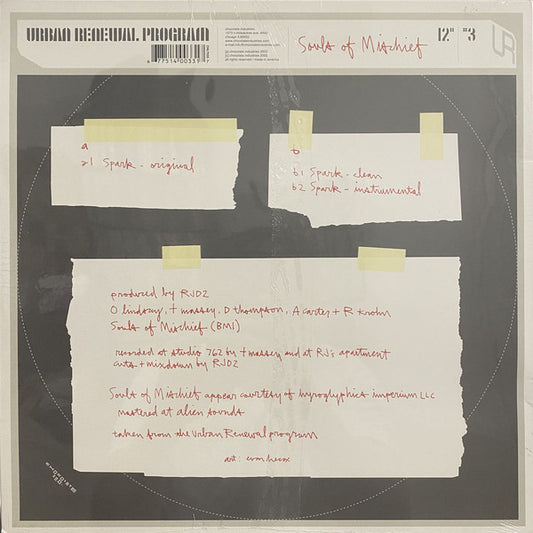 URBAN RENEWAL PROGRAM
chocolate industries
Souls of Mischief
12" "3
UR
a
a1 Spark - original
b
b1 Spark - clean
b2 Spark - instrumental
produced by RJD2
O lindsay, t massey, D thompson, A carter + R krohn
Souls of Mischief (BMI)
recorded at studio 762 by t massey and at RJ's apartment
cuts + mixdown by RJD2
Souls of Mischief appear courtesy of hyroglyphics imperium LLC
mastered at alien sounds
taken from the urban Renewal program
art: evan hecox